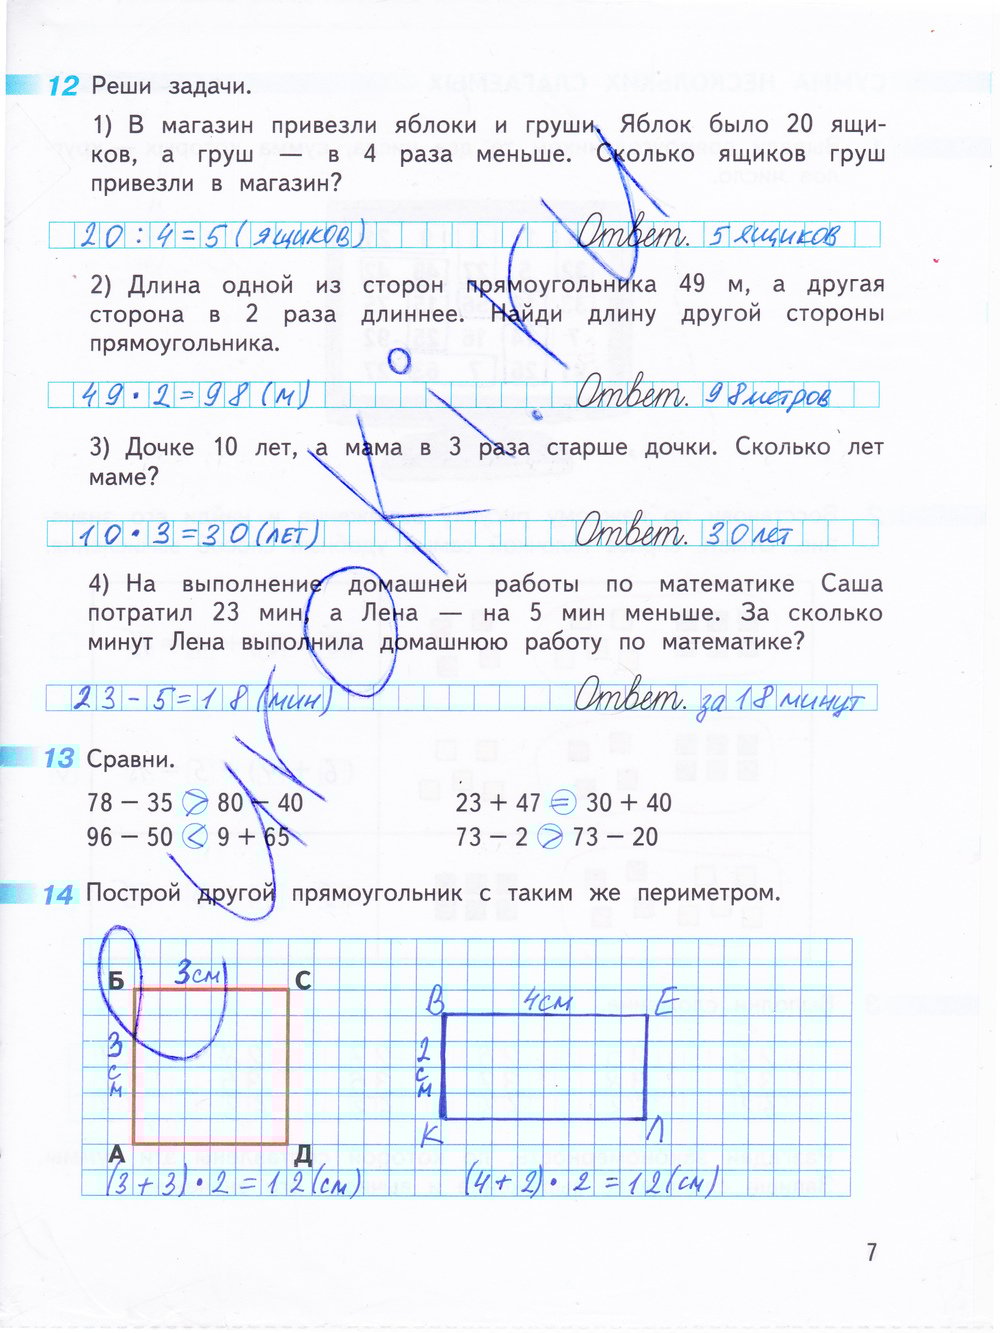 12 Реши задачи.
1) В магазин привезли яблоки и груши. Яблок было 20 ящи-
ков, а груш — в 4 раза меньше. Сколько ящиков груш
привезли в магазин?
20 : 4 = 5 (ящиков) Ответ. 5 ящиков
2) Длина одной из сторон прямоугольника 49 м, а другая
сторона в 2 раза длиннее. Найди длину другой стороны
прямоугольника.
49 · 2 = 98 (м) Ответ. 98 метров
3) Дочке 10 лет, а мама в 3 раза старше дочки. Сколько лет
маме?
10 · 3 = 30 (лет) Ответ. 30 лет
4) На выполнение домашней работы по математике Саша
потратил 23 мин, а Лена — на 5 мин меньше. За сколько
минут Лена выполнила домашнюю работу по математике?
23 - 5 = 18 (мин) Ответ. за 18 минут
13 Сравни.
78 − 35 > 80 − 40 23 + 47 = 30 + 40
96 − 50 < 9 + 65 73 − 2 > 73 − 20
14 Построй другой прямоугольник с таким же периметром.
Б 3см С В 4см Е
3 см 2 см
А Д К Л
(3 + 3) · 2 = 12 (см) (4 + 2) · 2 = 12 (см)
7